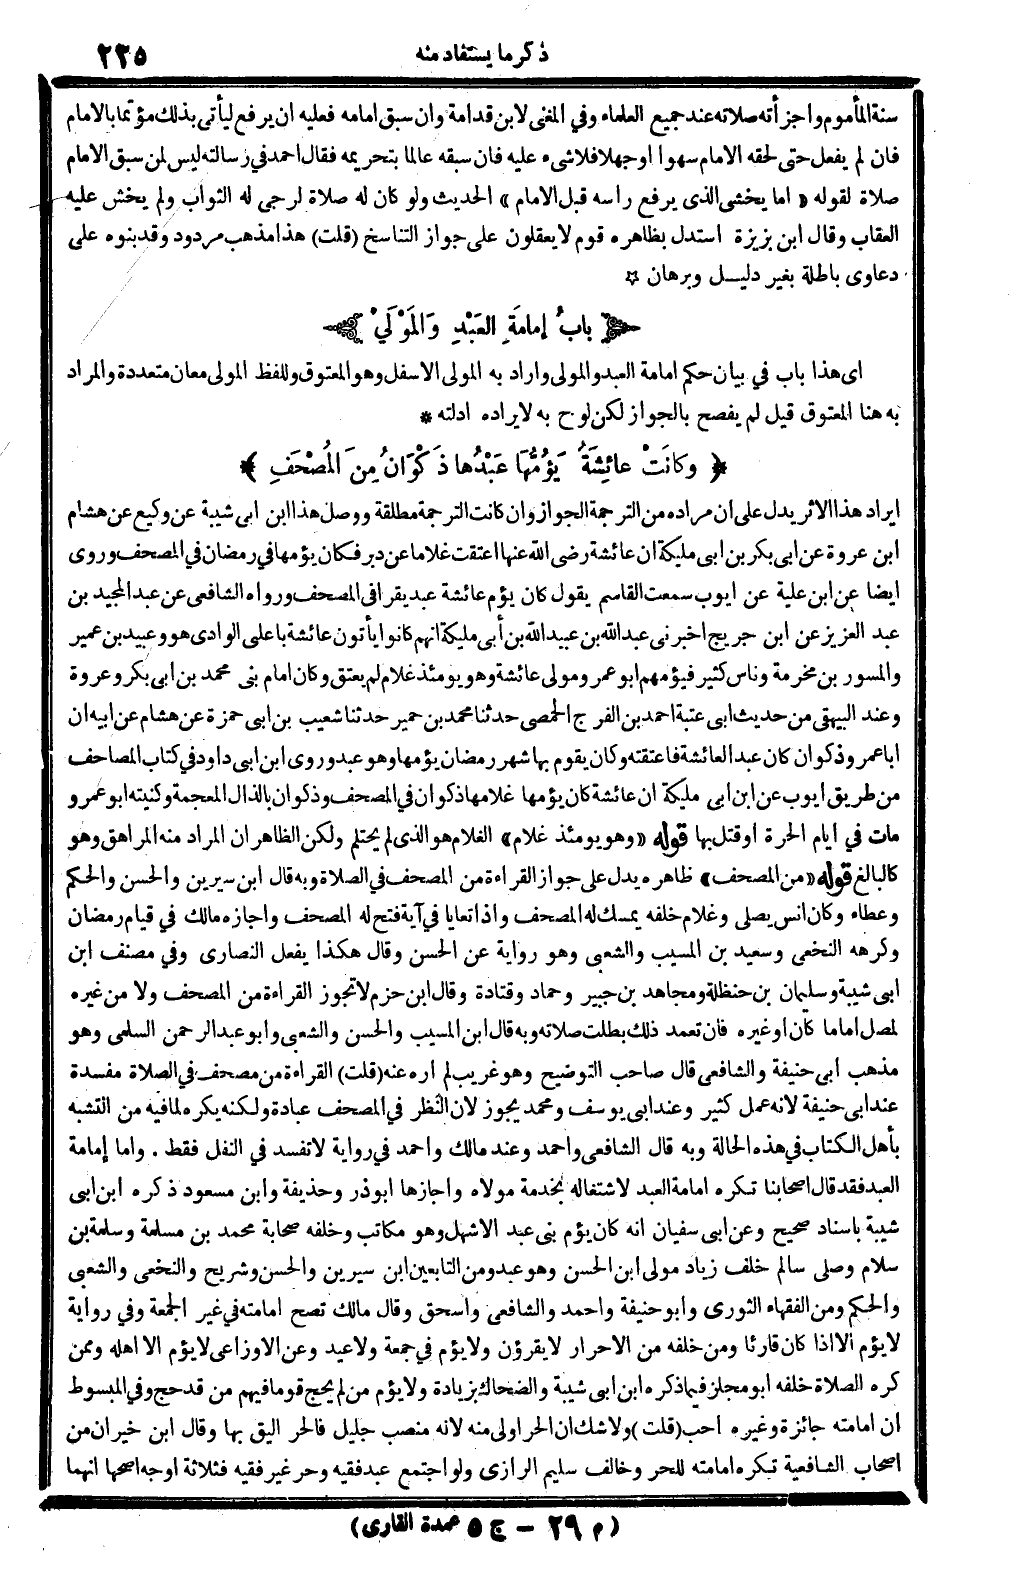 ذكر ما يستفاد منه
٢٢٥
سنة المأموم واجزأته صلاته عند جميع العلماء وفي المغنى لابن قدامة وان سبق امامه فعليه ان يرفع ليأتى بذلك مؤتما بالامام
فان لم يفعل حتى لحقه الامام سهوا او جهلا فلا شىء عليه فان سبقه عالما بتحريمه فقال احمد في رسالته ليس لمن سبق الامام
صلاة لقوله « اما يخشى الذى يرفع راسه قبل الامام » الحديث ولو كان له صلاة لرجى له الثواب ولم يخش عليه
العقاب وقال ابن بزيزة استدل بظاهره قوم لا يعقلون على جواز التناسخ (قلت) هذا مذهب مردود وقد بنوه على
دعاوى باطلة بغير دليل وبرهان ☆
بابُ إمامَةِ العَبْدِ وَالمَوْلَيْ
اى هذا باب في بيان حكم امامة العبد والمولى واراد به المولى الاسفل وهو المعتوق وللفظ المولى معان متعددة والمراد
به هنا المعتوق قيل لم يفصح بالجواز لكن لوح به لايراده ادلته *
﴿ وكانَتْ عائِشَةُ يَؤُمُّهَا عَبْدُها ذَكْوَانُ مِنَ المُصْحَفِ ﴾
ايراد هذا الاثر يدل على ان مراده من الترجمة الجواز وان كانت الترجمة مطلقة ووصل هذا ابن ابى شيبة عن وكيع عن هشام
ابن عروة عن ابى بكر بن ابى مليكة ان عائشة رضى الله عنها اعتقت غلاما عن دبر فكان يؤمها في رمضان في المصحف وروى
ايضا عن ابن علية عن ايوب سمعت القاسم يقول كان يؤم عائشة عبد يقرا في المصحف ورواه الشافعى عن عبد المجيد بن
عبد العزيز عن ابن جريج اخبرنى عبد الله بن عبيد الله بن أبى مليكة انهم كانوا يأتون عائشة باعلى الوادى هو وعبيد بن عمير
والمسور بن مخرمة وناس كثير فيؤمهم ابو عمرو مولى عائشة وهو يومئذ غلام لم يعتق وكان امام بنى محمد بن ابى بكر وعروة
وعند البيهقى من حديث ابى عتبة احمد بن الفرج الحمصى حدثنا محمد بن حمير حدثنا شعيب بن ابى حمزة عن هشام عن ابيه ان
ابا عمرو ذكوان كان عبدا لعائشة فاعتقته وكان يقوم بها شهر رمضان يؤمها وهو عبد وروى ابن ابى داود في كتاب المصاحف
من طريق ايوب عن ابن ابى مليكة ان عائشة كان يؤمها غلامها ذكوان في المصحف وذكوان بالذال المعجمة وكنيته ابو عمرو
مات في ايام الحرة او قتل بها قوله «وهو يومئذ غلام» الغلام هو الذى لم يحتلم ولكن الظاهر ان المراد منه المراهق وهو
كالبالغ قوله «من المصحف» ظاهره يدل على جواز القراءة من المصحف في الصلاة وبه قال ابن سيرين والحسن والحكم
وعطاء وكان انس يصلى وغلام خلفه يمسك له المصحف واذا تعايا في آية فتح له المصحف واجازه مالك في قيام رمضان
وكرهه النخعى وسعيد بن المسيب والشعبى وهو رواية عن الحسن وقال هكذا يفعل النصارى وفي مصنف ابن
ابى شيبة وسليمان بن حنظلة ومجاهد بن جبير وحماد وقتادة وقال ابن حزم لا تجوز القراءة من المصحف ولا من غيره
لمصل اماما كان او غيره فان تعمد ذلك بطلت صلاته وبه قال ابن المسيب والحسن والشعبى وابو عبد الرحمن السلمى وهو
مذهب أبى حنيفة والشافعى قال صاحب التوضيح وهو غريب لم اره عنه (قلت) القراءة من مصحف في الصلاة مفسدة
عند ابى حنيفة لانه عمل كثير وعند ابى يوسف ومحمد يجوز لان النظر في المصحف عبادة ولكنه يكره لما فيه من التشبه
بأهل الكتاب في هذه الحالة وبه قال الشافعى واحمد وعند مالك واحمد في رواية لا تفسد في النفل فقط . واما إمامة
العبد فقد قال اصحابنا تكره امامة العبد لاشتغاله بخدمة مولاه واجازها ابو ذر وحذيفة وابن مسعود ذكره ابن ابى
شيبة باسناد صحيح وعن ابى سفيان انه كان يؤم بنى عبد الاشهل وهو مكاتب وخلفه صحابة محمد بن مسلمة وسلمة بن
سلام وصلى سالم خلف زياد مولى ابن الحسن وهو عبد ومن التابعين ابن سيرين والحسن وشريح والنخعى والشعبى
والحكم ومن الفقهاء الثورى وابو حنيفة واحمد والشافعى واسحق وقال مالك تصح امامته في غير الجمعة وفي رواية
لا يؤم الا اذا كان قارئا ومن خلفه من الاحرار لا يقرؤن ولا يؤم في جمعة ولا عيد وعن الاوزاعى لا يؤم الا اهله وممن
كره الصلاة خلفه ابو مجلز فيما ذكره ابن ابى شيبة والضحاك بزيادة ولا يؤم من لم يحج قوما فيهم من قد حج وفي المبسوط
ان امامته جائزة وغيره احب (قلت) ولا شك ان الحر اولى منه لانه منصب جليل فالحر اليق بها وقال ابن خيران من
اصحاب الشافعية تكره امامته للحر وخالف سليم الرازى ولو اجتمع عبد فقيه وحر غير فقيه فثلاثة اوجه اصحها انهما
(م ٢٩ – ج ٥ عمدة القارى)